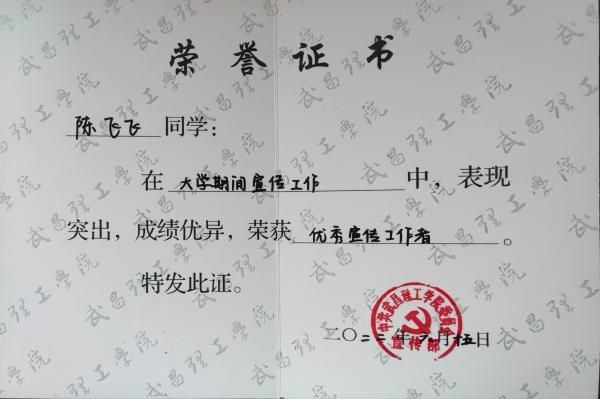 荣誉证书
陈飞飞同学：
在大学期间宣传工作中，表现
突出，成绩优异，荣获优秀宣传工作者。
特发此证。
中共武昌理工学院委员会
宣传部
二〇二二年 月 五日
武昌理工學院